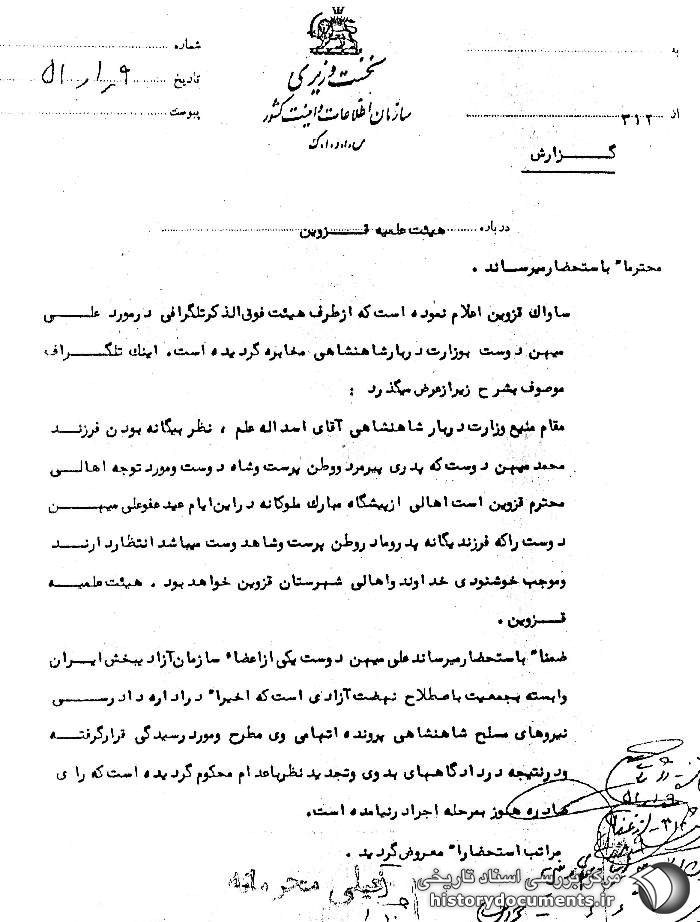 به
شماره
نخست وزیری
تاریخ ۵۱/۱/۹
سازمان اطلاعات و امنیت کشور
از ۳۱۲
پیوست
س.ا.و.ا.ک
گزارش
درباره هیئت علمیه قزوین
محترماً باستحضار میرساند .
ساواک قزوین اعلام نموده است که از طرف هیئت فوق الذکر تلگرافی در مورد علی
میهن دوست بوزارت دربار شاهنشاهی مخابره گردیده است . اینک تلگراف
موصوف بشرح زیر از عرض میگذرد :
مقام منیع وزارت دربار شاهنشاهی آقای اسداله علم ، نظر بیگانه بودن فرزند
محمد میهن دوست که پدری پیرمرد ووطن پرست وشاه دوست ومورد توجه اهالی
محترم قزوین است اهالی از پیشگاه مبارک ملوکانه در این ایام عید عفو علی میهن
دوست راکه فرزند یگانه پدر ومادر وطن پرست وشاهدوست میباشد انتظار دارند
وموجب خوشنودی خداوند واهالی شهرستان قزوین خواهد بود . هیئت علمیه
قزوین .
ضمناً باستحضار میرساند علی میهن دوست یکی از اعضاء سازمان آزاد یبخش ایران
وابسته بجمعیت باصطلاح نهضت آزادی است که اخیراً در اداره دادرسی
نیروهای مسلح شاهنشاهی پرونده اتهامی وی مطرح ومورد رسیدگی قرار گرفته
ودر نتیجه در دادگاههای بدوی وتجدید نظر باعدام محکوم گردیده است که رای
صادره هنوز بمرحله اجرا در نیامده است.
مراتب استحضاراً معروض گردید .
خیلی محرمانه
مرکز بررسی اسناد تاریخی
historydocuments.ir